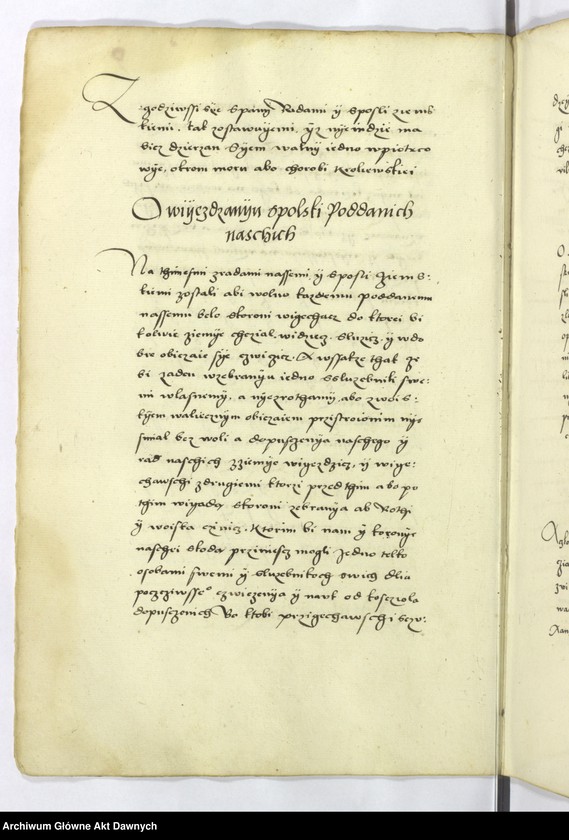 Zgodziwssi sye spany Radami y sposli ziems
kiemi. tak zostawuyemi, yz nyewdzie ma
biez dzierzan Syem walny iedno wpiotrco
wye, okrom moru abo chorobi Krolewskiei
O wiyezdzanyu spolski Poddanich
naschich
Na thimesmi zradami nassemi y sposli Ziems:
kiemi zostali abi wolno kazdemu poddanemu
nassemu belo skoroni wigechacz do ktorei bi
kolwie ziemye chczial. widziecz. sluzicz. y wdo
bre obiczaie sye czwiczicz. A wssakze thak ze
bi zaden wzebranyu iedno ssluzebniki swe:
mi wlasnemi, a nyezrothamy, abo zwois:
kyem walecznym obiczaiem przistroionim nye
smial bez woli a dopusczenya naschego y
rad naschich zziemye wigezdzicz, y wige:
chawschi zdrugiemi ktorzi przed thim abo po
thim wiyadą skoroni zebranya ab Rothi
y woiska czinicz. Ktorim bi nam y koronye
naschei skoda prziniescz mogli Jedno telko
osobami swemi y sluzebnikoch swich dlia
poczcziwsse° czwiczenya y nauk od kosczola
dopusczonich Bo ktobi przigechawschi bezw:
Archiwum Główne Akt Dawnych